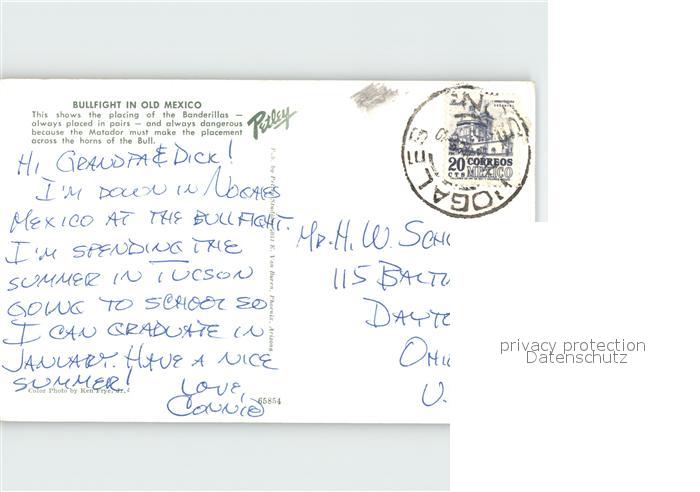 BULLFIGHT IN OLD MEXICO
This shows the placing of the Banderillas —
always placed in pairs — and always dangerous
because the Matador must make the placement
across the horns of the Bull.
Petley
HI GRANDPA & DICK!
I'M DOWN IN NOGALES
MEXICO AT THE BULLFIGHT.
I'M SPENDING THE
SUMMER IN TUCSON
GOING TO SCHOOL SO
I CAN GRADUATE IN
JANUARY. HAVE A NICE
SUMMER!
LOVE,
CONNIE
Color Photo by Ken Frye, Jr.
65854
E. Van Buren, Phoenix, Arizona
20 CORREOS
CTS MEXICO
NOGALES
MR. H. W. SCH
115 BALT
DAYTO
OHI
U.
privacy protection
Datenschutz